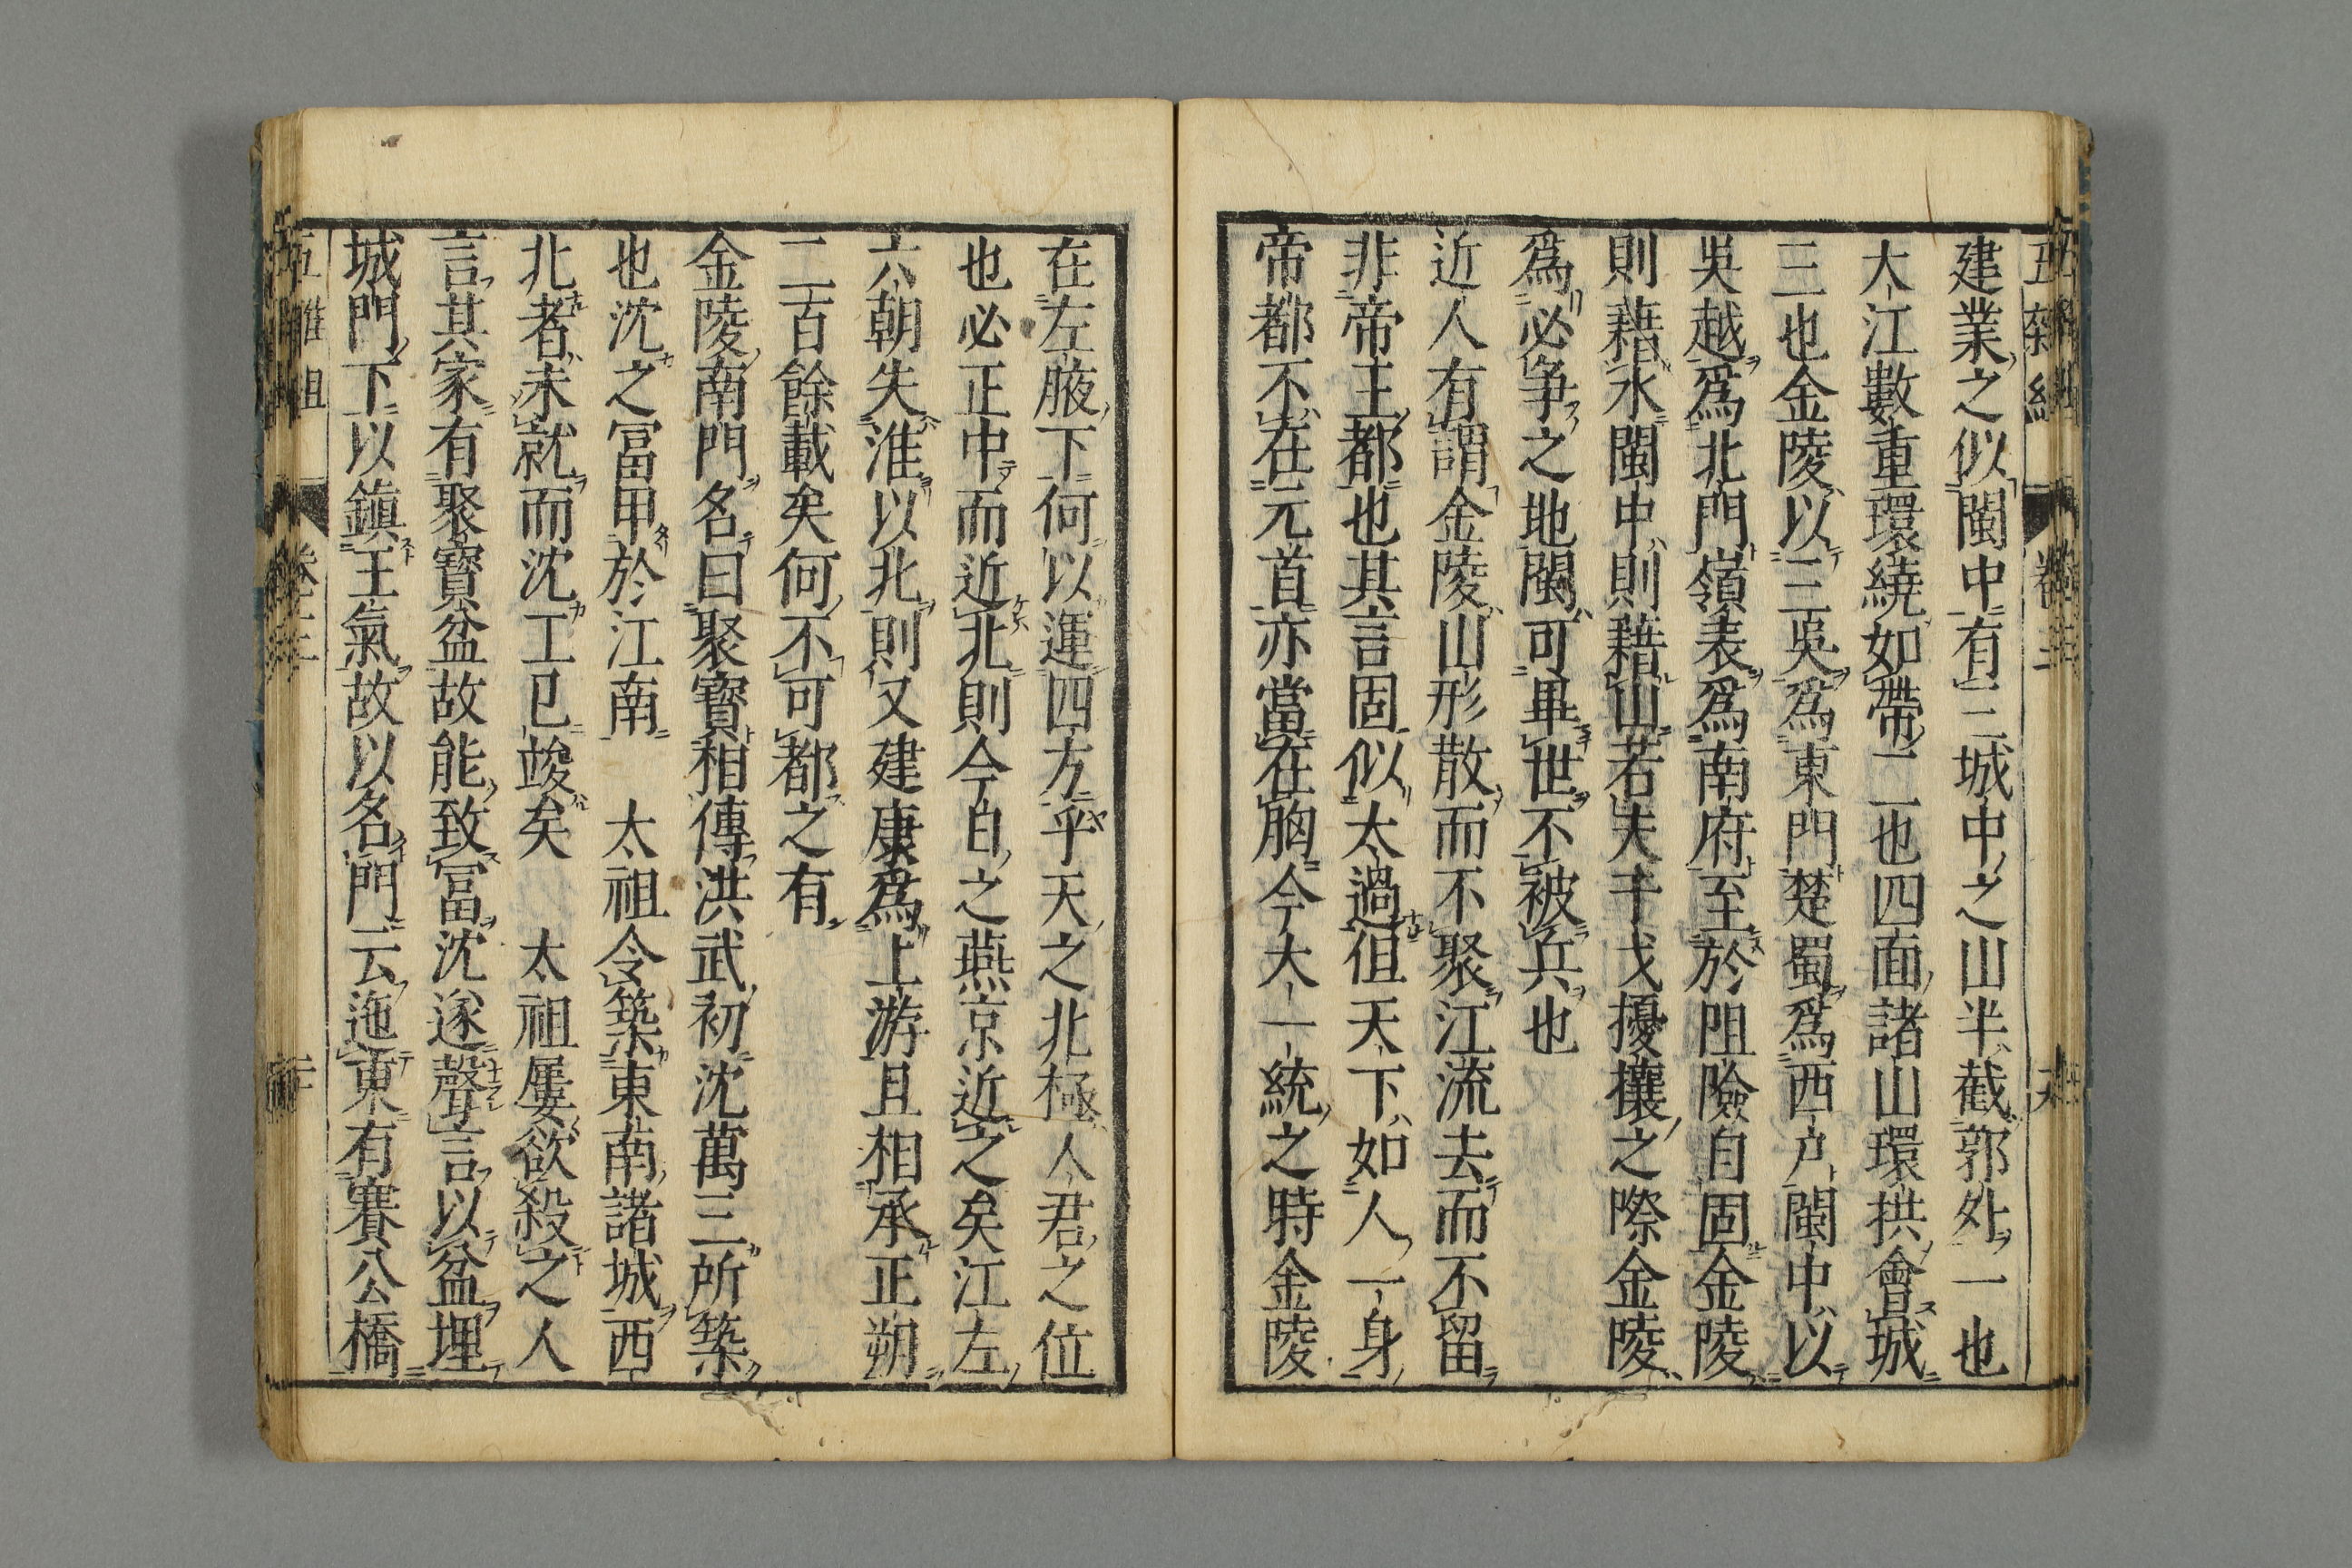 建業之似閩中有三城中之山半截郭外一也
大江數重環繞如帶二也四面諸山環拱會城
三也金陵以三吳爲東門楚蜀爲西户閩中以
吳越爲北門嶺表爲南府至於阻險自固金陵
則藉水閩中則藉山若夫干戈擾攘之際金陵
爲必爭之地閩可畢世不被兵也
近人有謂金陵山形散而不聚江流去而不留
非帝王都也其言固似太過但天下如人一身
帝都不在元首亦當在胸今大一統之時金陵
在左腋下何以運四方乎天之北極人君之位
也必正中而近北則今日之燕京近之矣江左
六朝失淮以北則又建康爲上游且相承正朔
二百餘載矣何不可都之有
金陵南門名曰聚寶相傳洪武初沈萬三所築
也沈之富甲於江南 太祖令築東南諸城西
北者未就而沈工已竣矣 太祖屢欲殺之人
言其家有聚寶盆故能致富沈遂聲言以盆埋
城門下以鎮王氣故以名門云迤東有賽公橋
五雜組 卷三